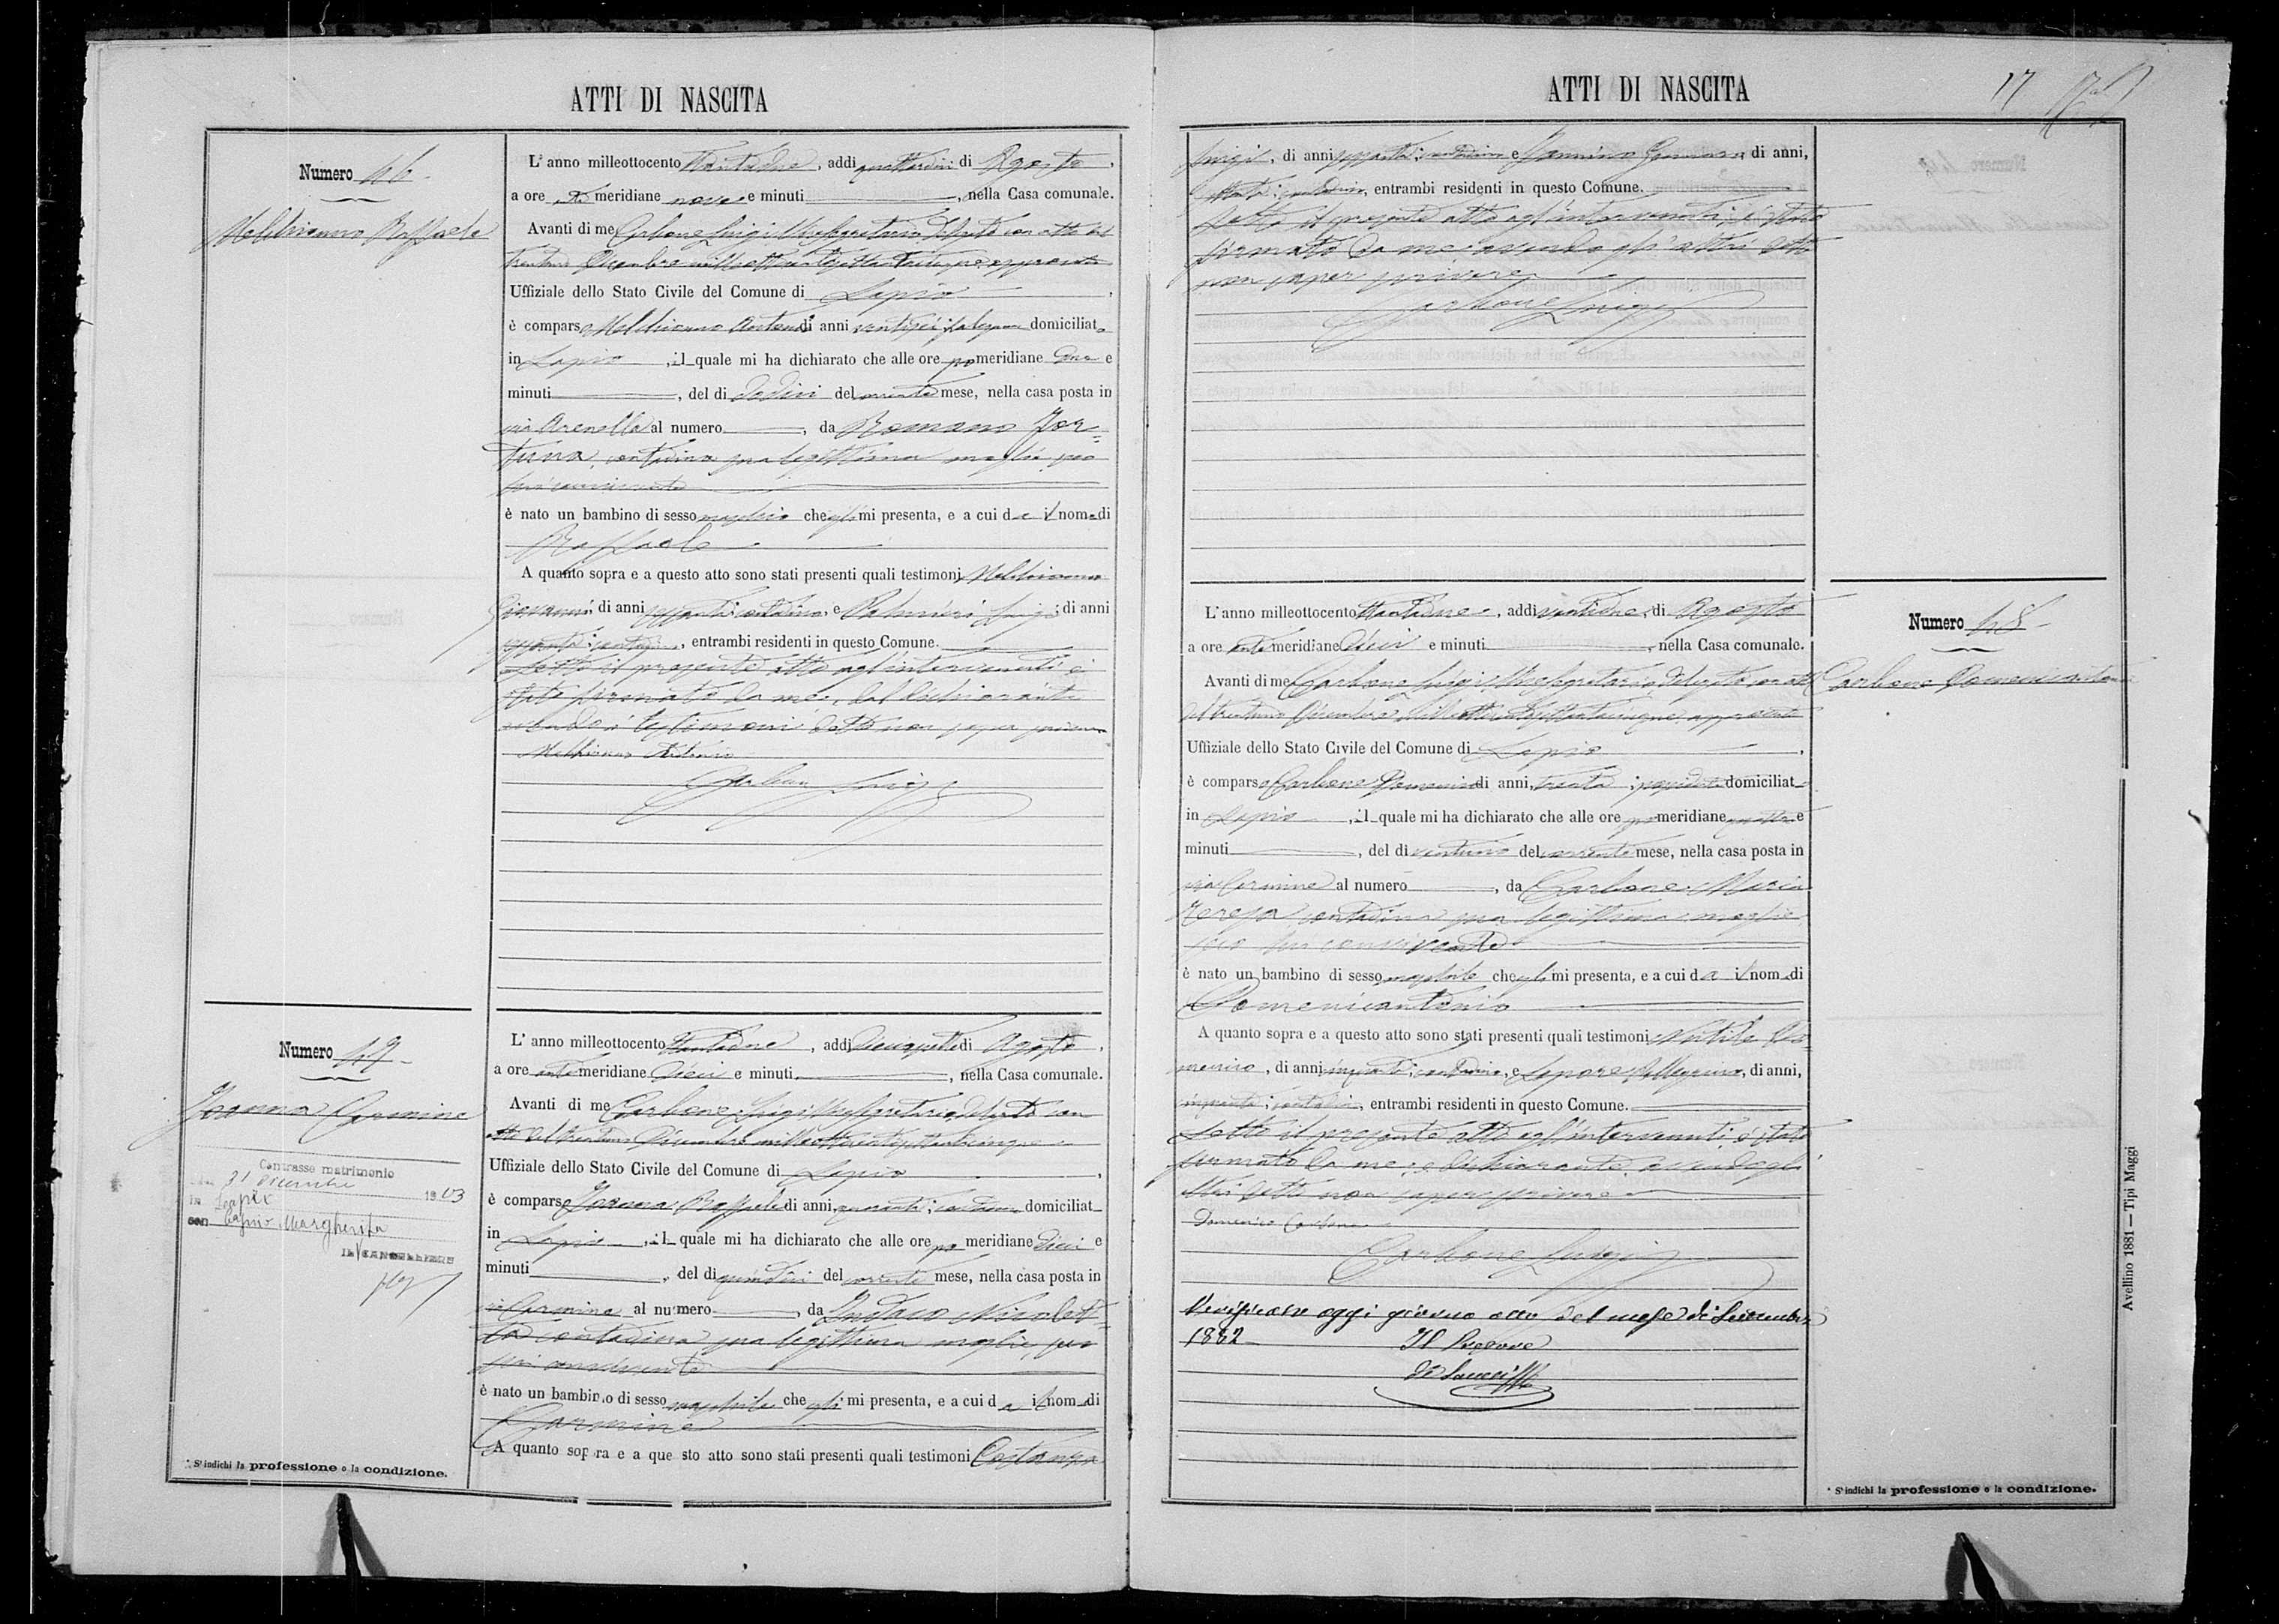 ATTI DI NASCITA
Numero 46
Meldrianno Raffaele
L'anno milleottocento ottantadue, addi quattordici di Agosto,
a ore meridiane nove e minuti, nella Casa comunale.
Avanti di me Carbone Luigi Vicesegretario delegato con atto del
trentuno Dicembre milleottocentosettantacinque, approvato
Uffiziale dello Stato Civile del Comune di Lapio,
è comparso Antonio di anni ventisei, falegname domiciliato
in Lapio, il quale mi ha dichiarato che alle ore pomeridiane una e
minuti, del di dodici del corrente mese, nella casa posta in
via Arenella al numero, da Romano For=
tuna, contadina sua legittima moglie, seco
lui convivente
è nato un bambino di sesso maschile che egli mi presenta, e a cui da il nome di
Raffaele
A quanto sopra e a questo atto sono stati presenti quali testimoni
Giovanni, di anni sessanta, contadino, e Palmieri Luigi, di anni
sessanta, contadino, entrambi residenti in questo Comune.
Letto il presente atto agl'intervenuti è
stato firmato da me, dal dichiarante
avendo i testimoni detto non saper scrivere
Antonio
Carbone Luigi
Numero 47
Carmine
Contrasse matrimonio
31 Dicembre 1903
in Lapio
con Margherita
IL CANCELLIERE
L'anno milleottocento ottantadue, addi diciassette di Agosto,
a ore antimeridiane dieci e minuti, nella Casa comunale.
Avanti di me Carbone Luigi Vicesegretario, delegato con
atto del trentuno Dicembre milleottocentosettantacinque
Uffiziale dello Stato Civile del Comune di Lapio,
è comparso Raffaele di anni quaranta, contadino domiciliat
in Lapio, il quale mi ha dichiarato che alle ore po meridiane dieci e
minuti, del di quindici del corrente mese, nella casa posta in
via Carmine al numero, da Nicolet=
ta contadina sua legittima moglie, seco
lui convivente
è nato un bambino di sesso maschile che egli mi presenta, e a cui da il nome di
Carmine
A quanto sopra e a questo atto sono stati presenti quali testimoni Costanza
* S'indichi la professione o la condizione.
ATTI DI NASCITA
17
Luigi, di anni sessanta, contadino e Gennaro di anni,
contadino, entrambi residenti in questo Comune.
Letto il presente atto agl'intervenuti, è stato
firmato da me, avendo gli altri detto
non saper scrivere
Carbone Luigi
Numero 48
Carbone Domenicantonio
L'anno milleottocento ottantadue, addi ventidue, di Agosto
a ore antimeridiane dieci e minuti, nella Casa comunale.
Avanti di me Carbone Luigi Vicesegretario, delegato con atto
del trentuno Dicembre milleottocentosettantacinque, approvato
Uffiziale dello Stato Civile del Comune di Lapio,
è comparso Carbone Domenico di anni, trenta; domiciliat
in Lapio, il quale mi ha dichiarato che alle ore pomeridiane quattro e
minuti, del di ventuno del corrente mese, nella casa posta in
via Carmine al numero, da Carbone Maria
Teresa, contadina sua legittima moglie
seco lui convivente
è nato un bambino di sesso maschile che egli mi presenta, e a cui da il nome di
Domenicantonio
A quanto sopra e a questo atto sono stati presenti quali testimoni Do=
menico, di anni cinquanta, contadino, e Lepore Pellegrino, di anni,
cinquanta, contadino, entrambi residenti in questo Comune.
Letto il presente atto agl'intervenuti, è stato
firmato da me, e dichiarante, avendo gli
altri detto non sapere scrivere
Domenico Carbone
Carbone Luigi
Verificato oggi giorno otto del mese di Settembre
1882 Il Pretore
* S'indichi la professione o la condizione.
Avellino 1881 — Tipi Maggi